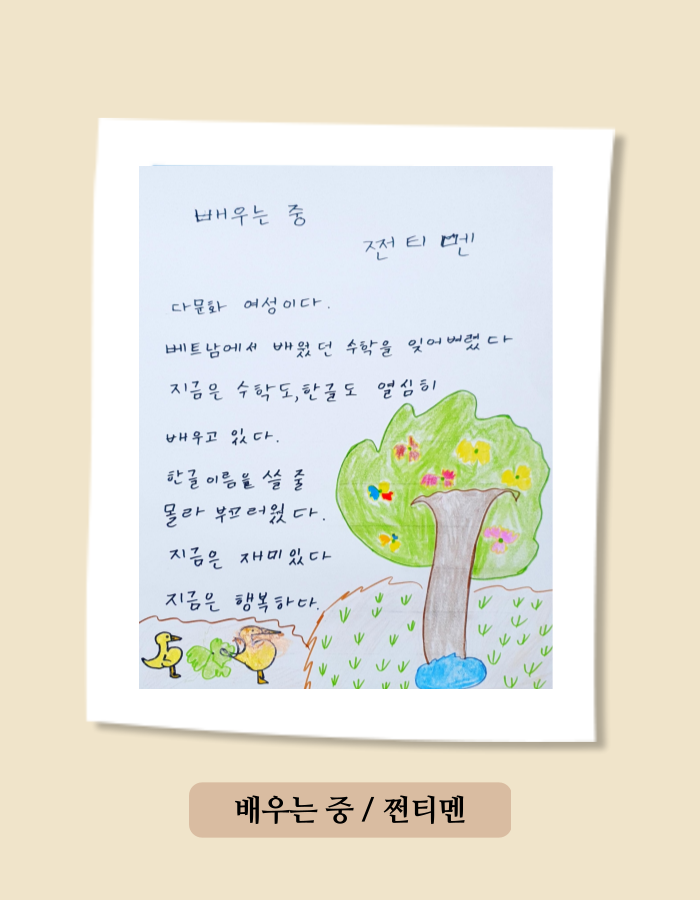 배우는 중
쩐티멘
다문화 여성이다.
베트남에서 배웠던 수학을 잊어버렸다
지금은 수학도, 한글도 열심히
배우고 있다.
한글이름을 쓸 줄
몰라 부끄러웠다.
지금은 재미있다
지금은 행복하다.
배우는 중 / 쩐티멘